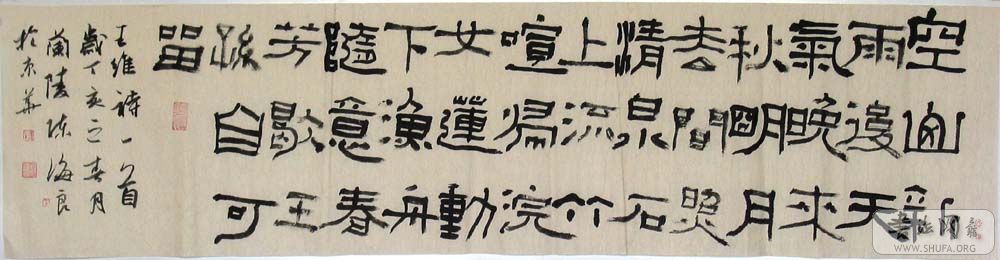 空山新
雨後天
氣晚來
秋明月
枩間照
清泉石
上流竹
喧歸浣
女蓮動
下漁舟
隨意春
芳歇王
孫自可
留
王維詩一首
歲丁亥之春月
蘭陵陳海良
於京華
书法网
WWW.SHUFA.ORG